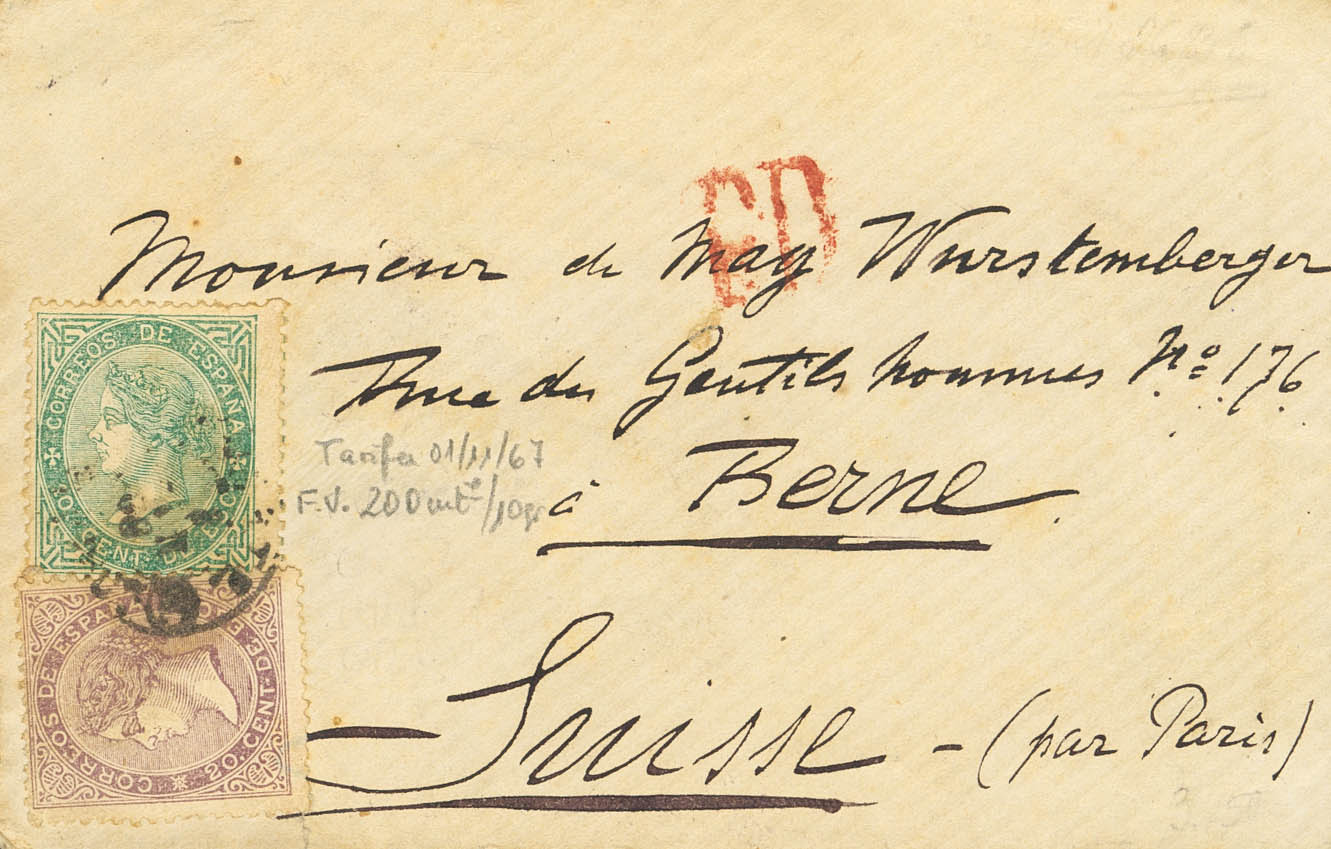 PD
Monsieur de May Wurstemberger
Rue des Gentils hommes No 176
à Berne
Suisse - (par Paris)
CORREOS DE ESPAÑA
10 CENT. DE Eo
CORREOS DE ESPAÑA
20 CENT. DE Eo
Tarifa 01/11/67
F.V. 200 mls/10gr